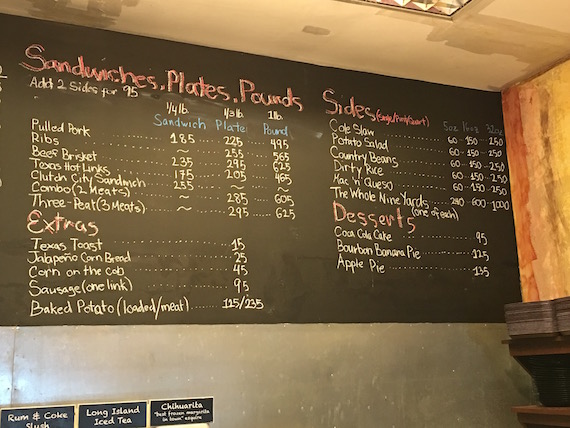 Sandwiches, Plates, Pounds
Add 2 Sides for 95
1/4 lb. 1/3 lb. 1 lb.
Sandwich Plate Pound
Pulled Pork 185 225 495
Ribs ~ 255 565
Beef Brisket 235 295 625
Texas Hot Links 175 205 465
Clutch City Sandwich 255 ~ ~
Combo (2 Meats) ~ 285 605
Three-Peat (3 Meats) ~ 295 625
Extras
Texas Toast 15
Jalapeño Corn Bread 25
Corn on the cob 45
Sausage (one link) 95
Baked Potato (loaded/meat) 115/235
Sides (Single/Pint/Quart)
5oz 16oz 32oz
Cole Slaw 60 150 250
Potato Salad 60 150 250
Country Beans 60 150 250
Dirty Rice 60 150 250
Mac 'n' Queso 60 150 250
The Whole Nine Yards 240 600 1000
(one of each)
Desserts
Coca Cola Cake 95
Bourbon Banana Pie 125
Apple Pie 135
Rum & Coke
Slush
Long Island
Iced Tea
Chihuarita
"Best frozen margarita
in town" esquire